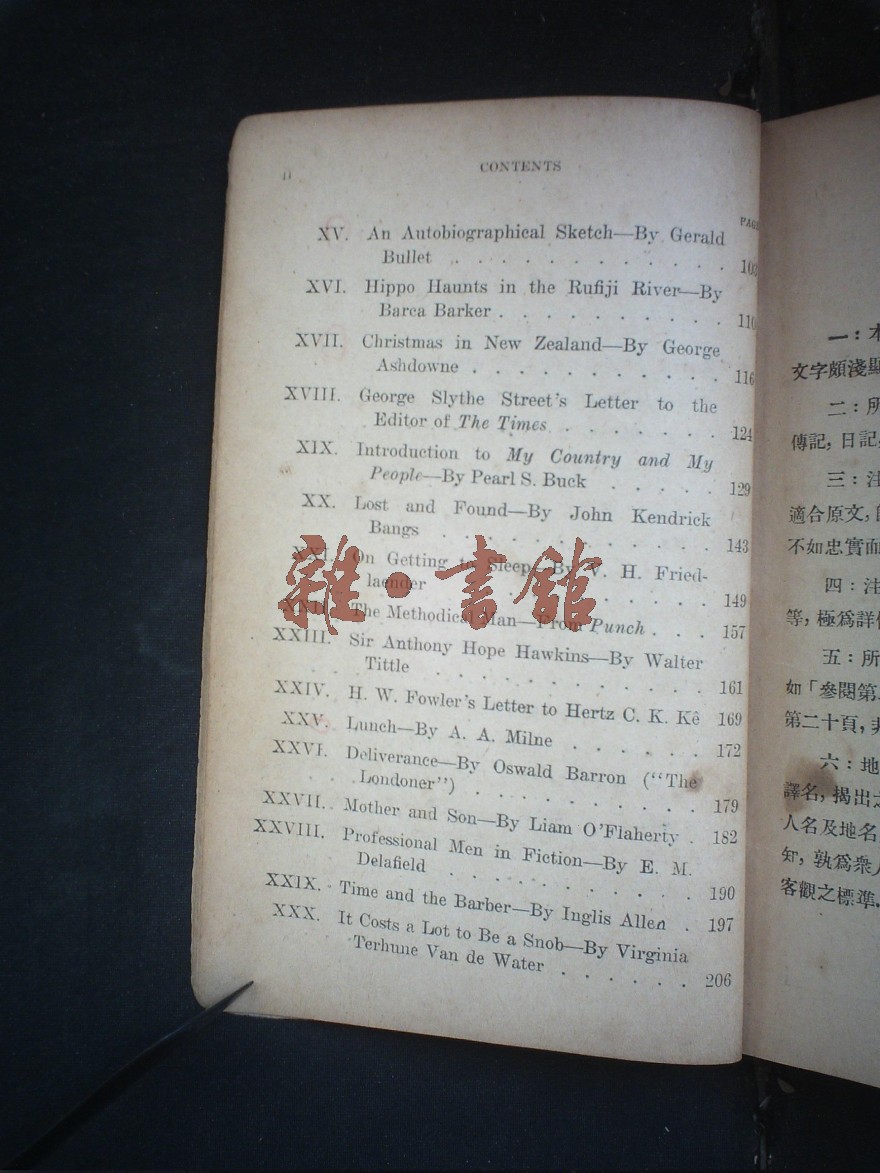 ii
CONTENTS
PAGE
XV. An Autobiographical Sketch—By Gerald
Bullet . . . . . . . . . . . . 103
XVI. Hippo Haunts in the Rufiji River—By
Barca Barker . . . . . . . . . 110
XVII. Christmas in New Zealand—By George
Ashdowne . . . . . . . . . . . 116
XVIII. George Slythe Street's Letter to the
Editor of The Times . . . . . . . 124
XIX. Introduction to My Country and My
People—By Pearl S. Buck . . . . . 129
XX. Lost and Found—By John Kendrick
Bangs . . . . . . . . . . . . 143
XXI. On Getting to Sleep—By V. H. Fried-
laender . . . . . . . . . . . . 149
XXII. The Methodical Man—From Punch . . . 157
XXIII. Sir Anthony Hope Hawkins—By Walter
Tittle . . . . . . . . . . . . 161
XXIV. H. W. Fowler's Letter to Hertz C. K. Kê 169
XXV. Lunch—By A. A. Milne . . . . . . 172
XXVI. Deliverance—By Oswald Barron ("The
Londoner") . . . . . . . . . . 179
XXVII. Mother and Son—By Liam O'Flaherty . 182
XXVIII. Professional Men in Fiction—By E. M.
Delafield . . . . . . . . . . . 190
XXIX. Time and the Barber—By Inglis Allen . 197
XXX. It Costs a Lot to Be a Snob—By Virginia
Terhune Van de Water . . . . . . 206
雜·書館
一：本
文字頗淺顯
二：所
傳記，日記，
三：注
適合原文，
不如忠實而
四：注
等，極爲詳
五：所
如「參閱第
第二十頁，非
六：地
譯名，揭出之
人名及地名
知，孰爲衆人
客觀之標準．